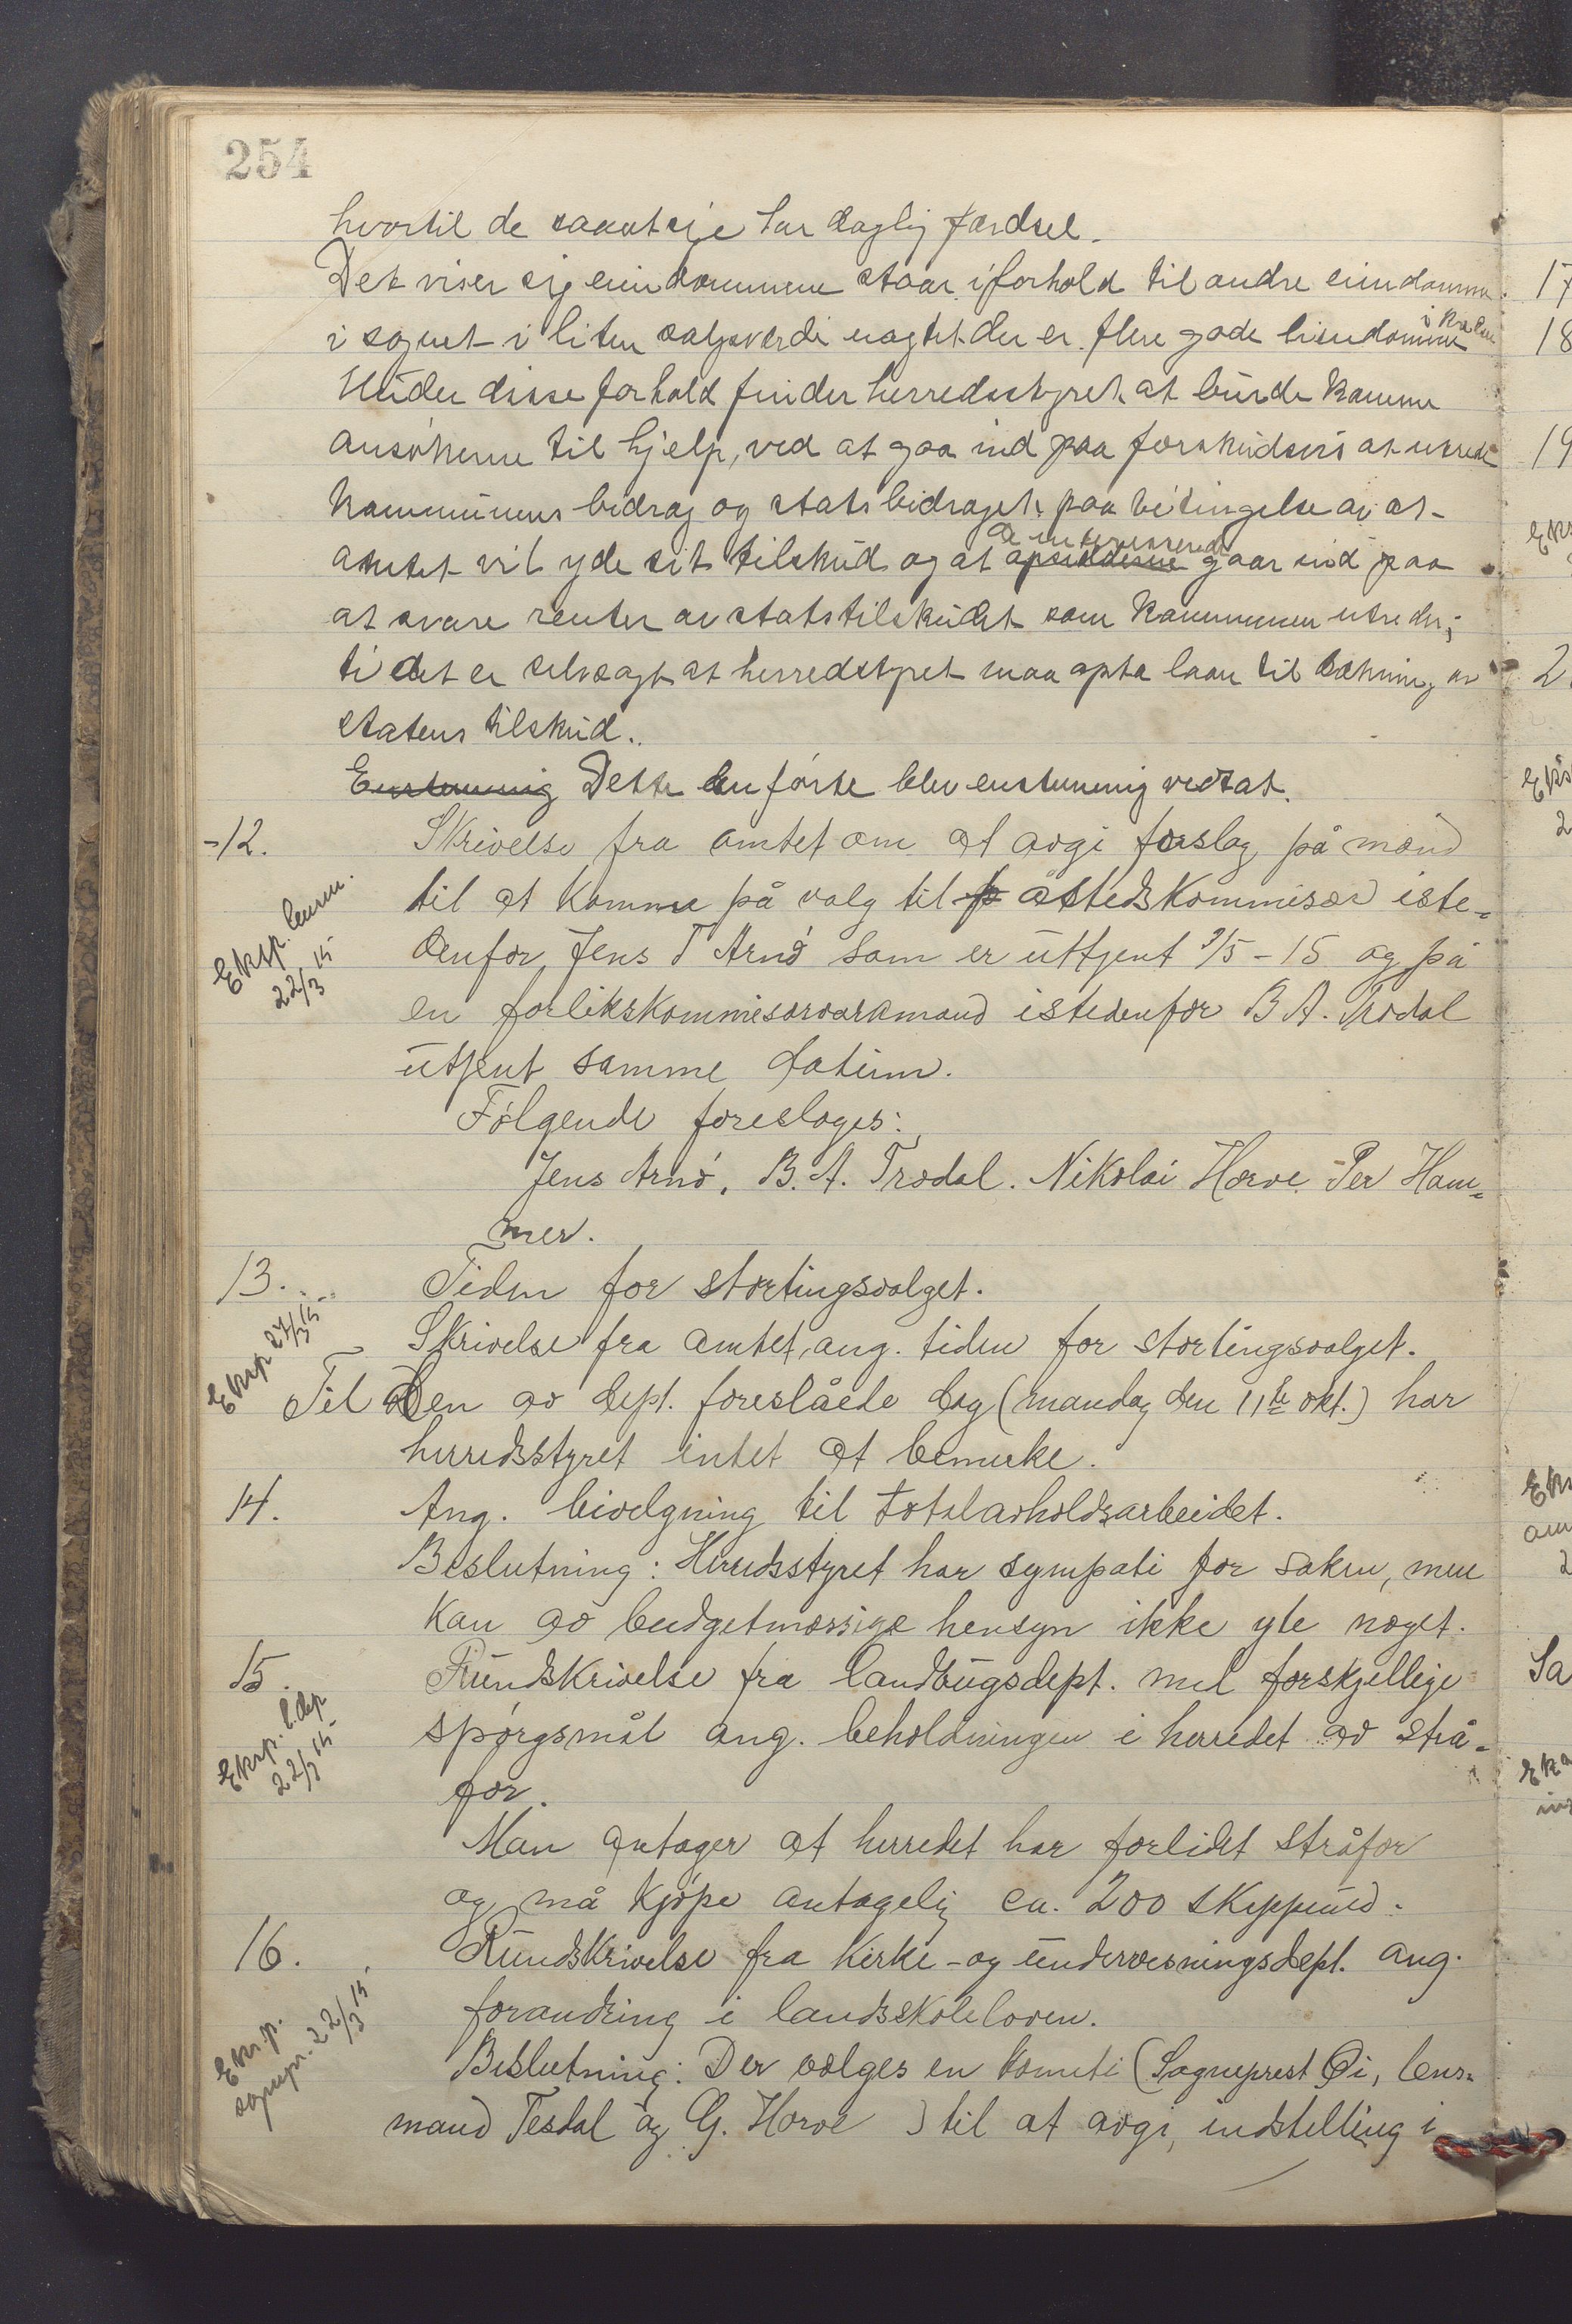 254
hvortil de saaatsie har daglig færdsel.
Det viser sig eiendommene staar i forhold til andre eiendomme
i sognet i liten salgsværdi uagtet der er flere gode eiendomme i
Under disse forhold finder herredsstyret at burde komme
ansökerne til hjelp, ved at gaa ind paa forskudsvis at utrede
kommunens bidrag og statsbidraget paa betingelse av at
de interesserede
amtet vil yde sit tilskud og at opsidderne gaar ind paa
at svare renter av statstilskudet som kommunen utreder;
ti det er selvsagt at herredstyret maa opta laan til dækning av
statens tilskud.
Enstemmig Dette enførte blev enstemmig vedtat.
12. Skrivelse fra amtet om at avgi forslag på mænd
til at komme på valg til p åstedskommisær iste-
Eksp. lensm. 22/3 15
denfor Jens T Arnö som er uttjent 9/5-15 og på
en forlikskommisærvaramand istedenfor B A. Trodal
utjent samme datum.
Følgende foreslåges:
Jens Arnö, B. A. Trodal. Nikolai Horve Per Ham-
mer.
13. Tiden for stortingsvalget.
Eksp 27/3 15
Skrivelse fra amtet, ang. tiden for stortingsvalget.
Til den av dept. foreslåede dag (mandag den 11te okt.) har
herredsstyret intet at bemerke.
14. Ang. bivelgning til totalavholdsarbeidet.
Beslutning: Herredsstyret har sympati for saken, men
kan av budgetmæssige hensyn ikke yte noget.
15. Rundskrivelse fra landbugsdept. med forskjellige
Eksp. l.dep 22/3 15
spørgsmål ang. beholdningen i herredet av strå-
for.
Man antager at herredet har forlidet stråfor
og må kjøpe antagelig ca. 200 skippund.
16. Rundskrivelse fra Kirke- og undervisningsdept. ang.
forandring i landsskoleloven.
Eks.p. sognpr. 22/3 15
Beslutning: Der vælges en komite (Sogneprest Øi, lens-
mand Tesdal og G. Horve ) til at avgi, indstelling i
17
18
19
2
Eks
2
Eks
am
2
Sa
Eks